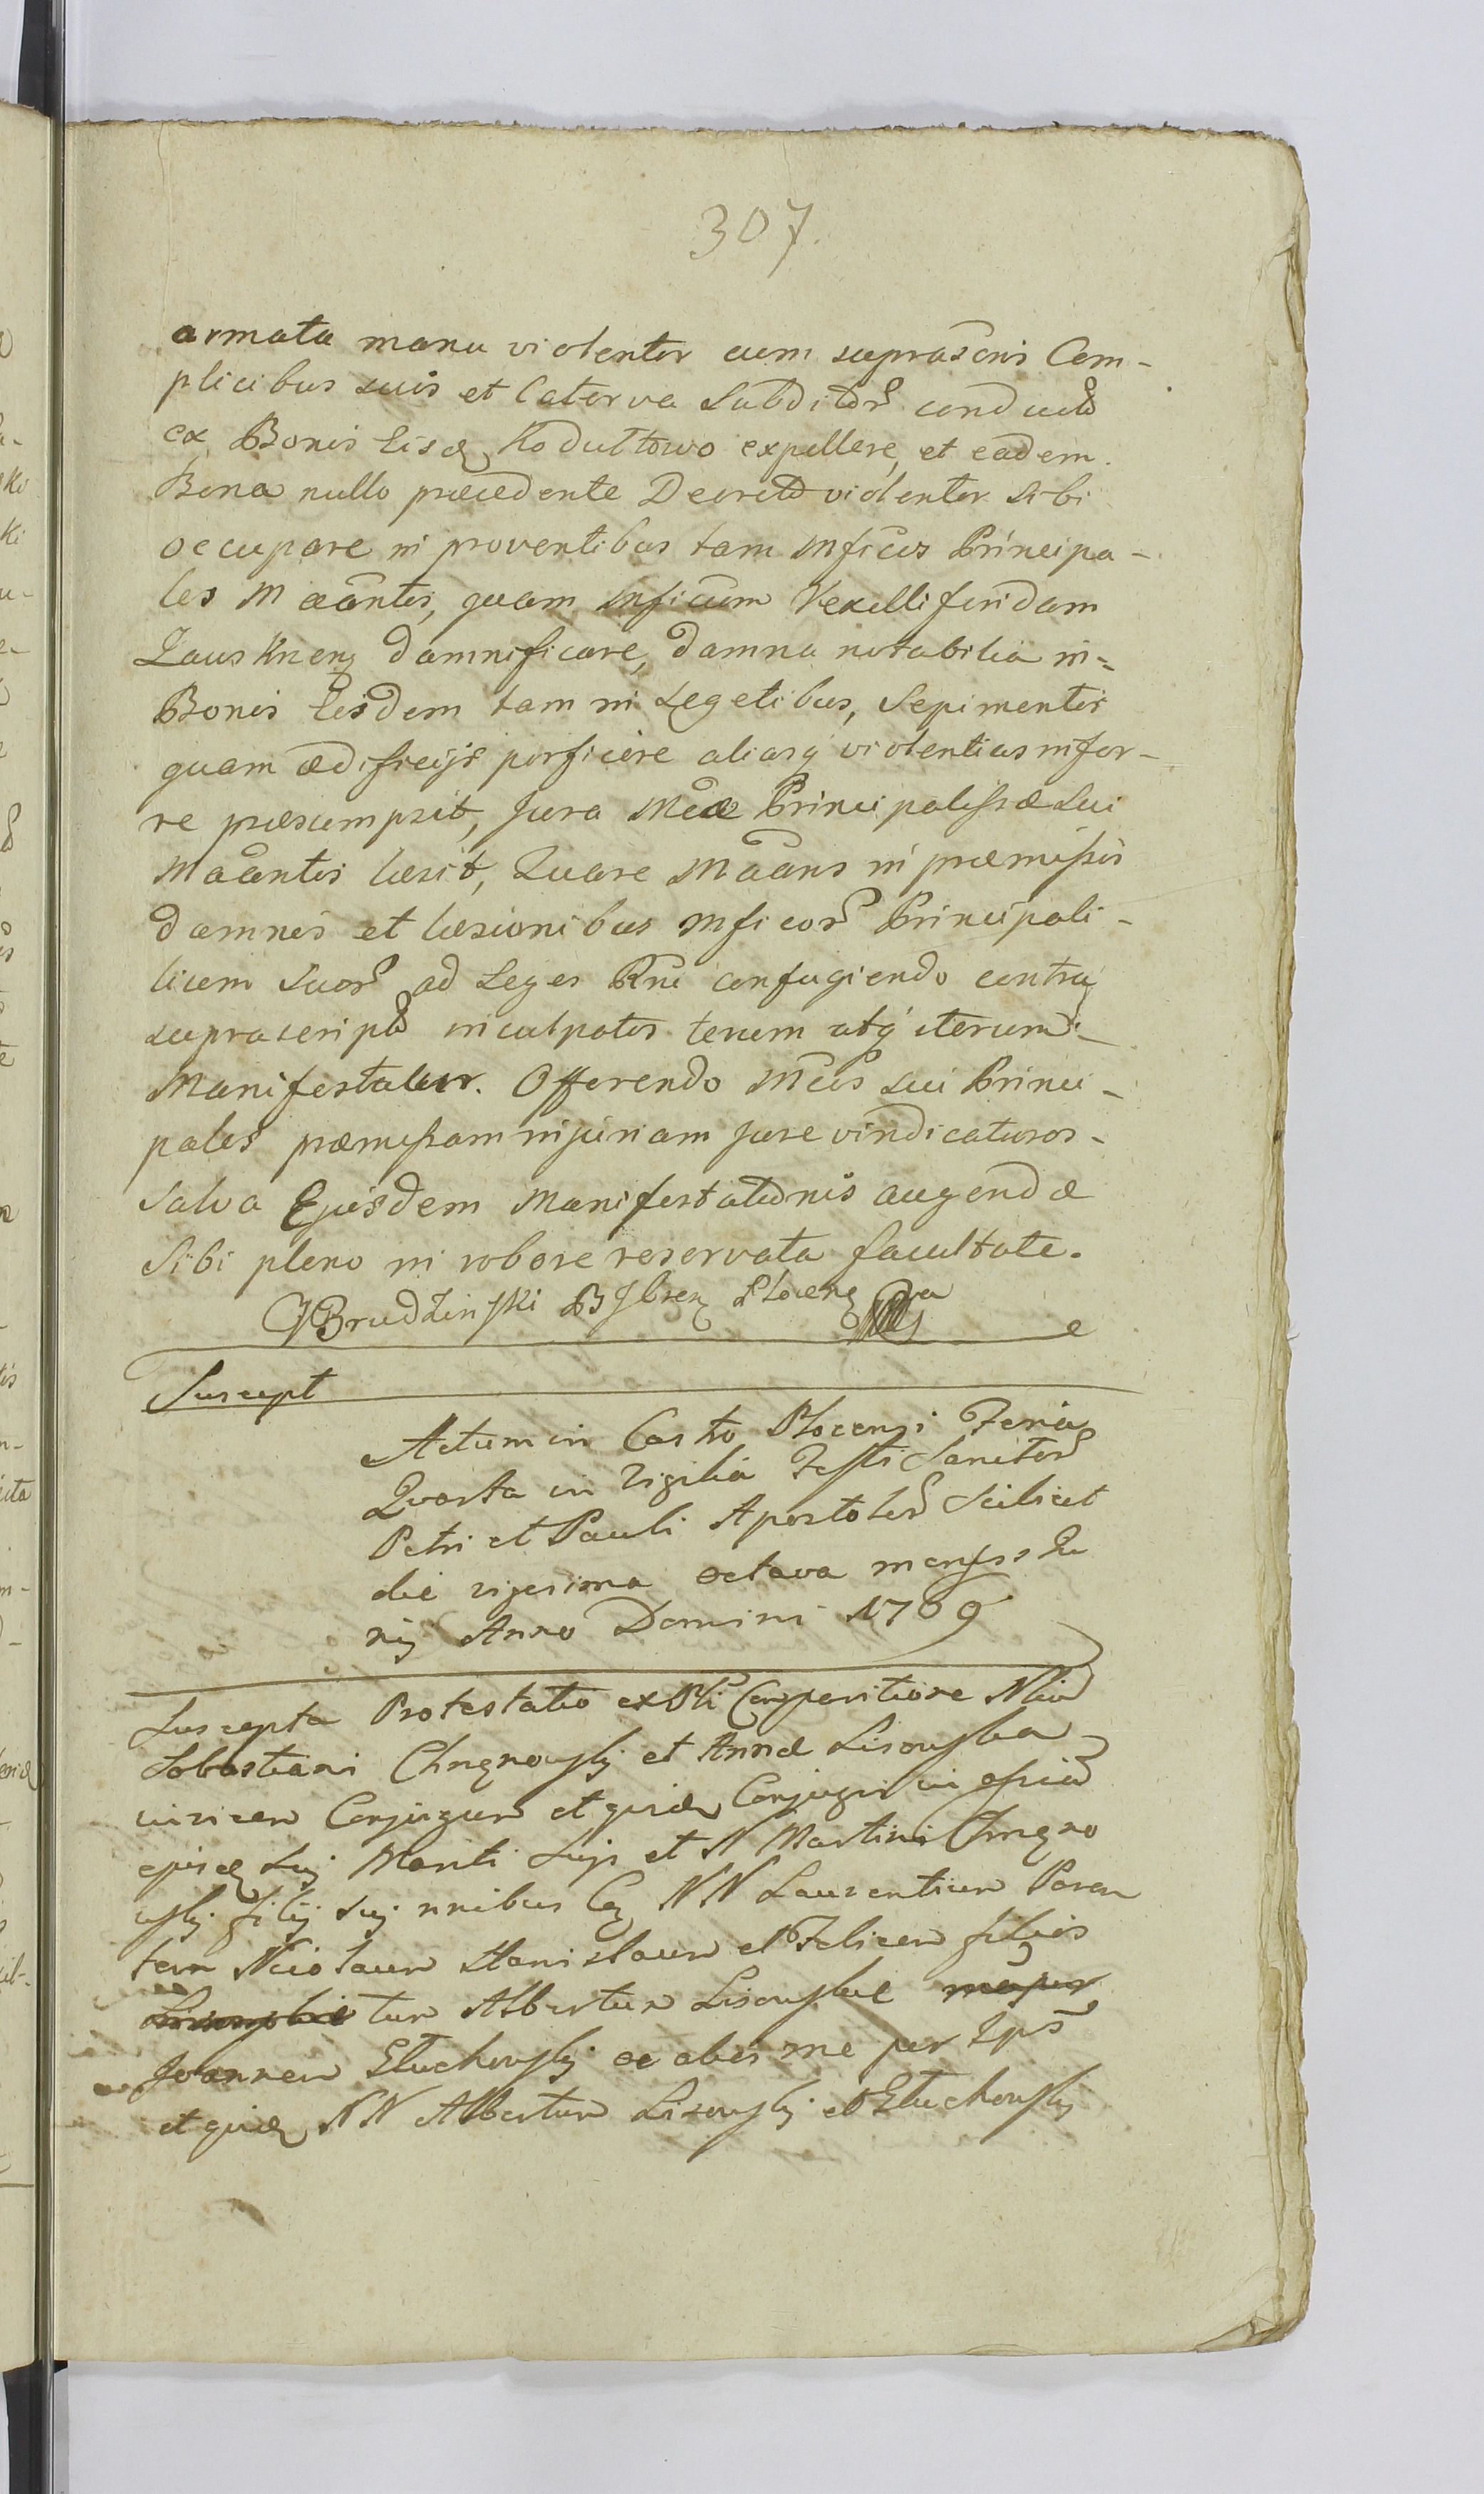 307.
armata manu violenter cum suprascris Com-
plicibus suis et Caterva Subditor conducto
ex Bonis Eisd Kodultowo expellere, et eadem
Bona nullo præcedente Decreto violenter sibi
occupare in proventibus tam Mficos Principa-
les Maantis, quam Mficum Vexilliferidam
Zauskrzen damnificare, damna notabilia in=
Bonis Eisdem tam in Segetibus, Sepimentis
quam ædificijs perficere aliasq violentias infer-
re præsumpsit, Jura Mcæ Principalissæ Sui
Maantis læsit, Quare Maans in præmissis
damnis et læsionibus Mficor Principali-
licem Suor ad Leges Rni confugiendo contra
suprascripto inculpatos iterum atq iterum
Manifestatur. Offerendo Mcos sui Princi-
pales præmissam injuriam Jure vindicaturos-
Salva Ejusdem Manifestationis augendæ
Sibi pleno in robore reservata facultate.
Brudzinski B Plocen
Suscept
Actum in Castro Plocensi Feria
Quarta in Vigilia Festi Sanctor
Petri et Pauli Apostolor Scilicet
die vigesima octava mensis Ju
nij Anno Domini 1769
Suscepta Protestatio ex Comparitione
Sebastiani et Annæ Lisowska
invicem Conjugum et quid Conjugis in
Mariti sui et N Martini
filij sui NN Laurentium Paren
tem Nicolaum Stanislaum et Felicem filios
tum Albertum Lisowskie
Joannem Głuchowski ac alios me per
et quid NN Albertum Lisowski et Głuchowski